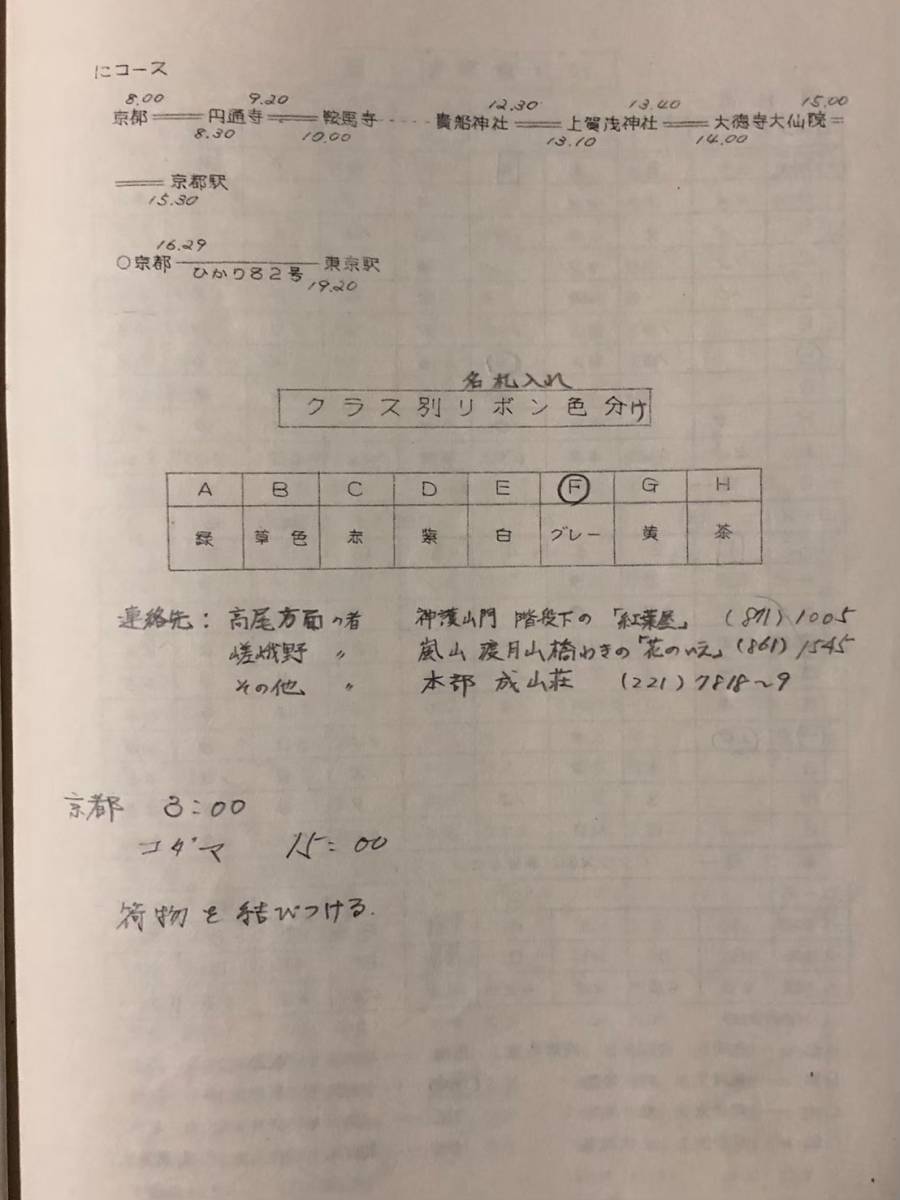 にコース
8.00 9.20 12.30 13.40 15.00
京都══円通寺══鞍馬寺‥‥貴船神社══上賀茂神社══大徳寺大仙院═
8.30 10.00 13.10 14.00
══京都駅
15.30
16.29
○京都─ひかり82号─東京駅
19.20
名札入れ
クラス別リボン色分け
A B C D E F G H
緑 草色 赤 紫 白 グレー 黄 茶
連絡先：高尾方面の者 神護山門 階段下の「紅葉屋」 (871)1005
嵯峨野 〃 嵐山 渡月山橋わきの「花のいえ」(861)1545
その他 〃 本部 成山荘 (221)7818〜9
京都 3:00
コダマ 15:00
荷物を結びつける.